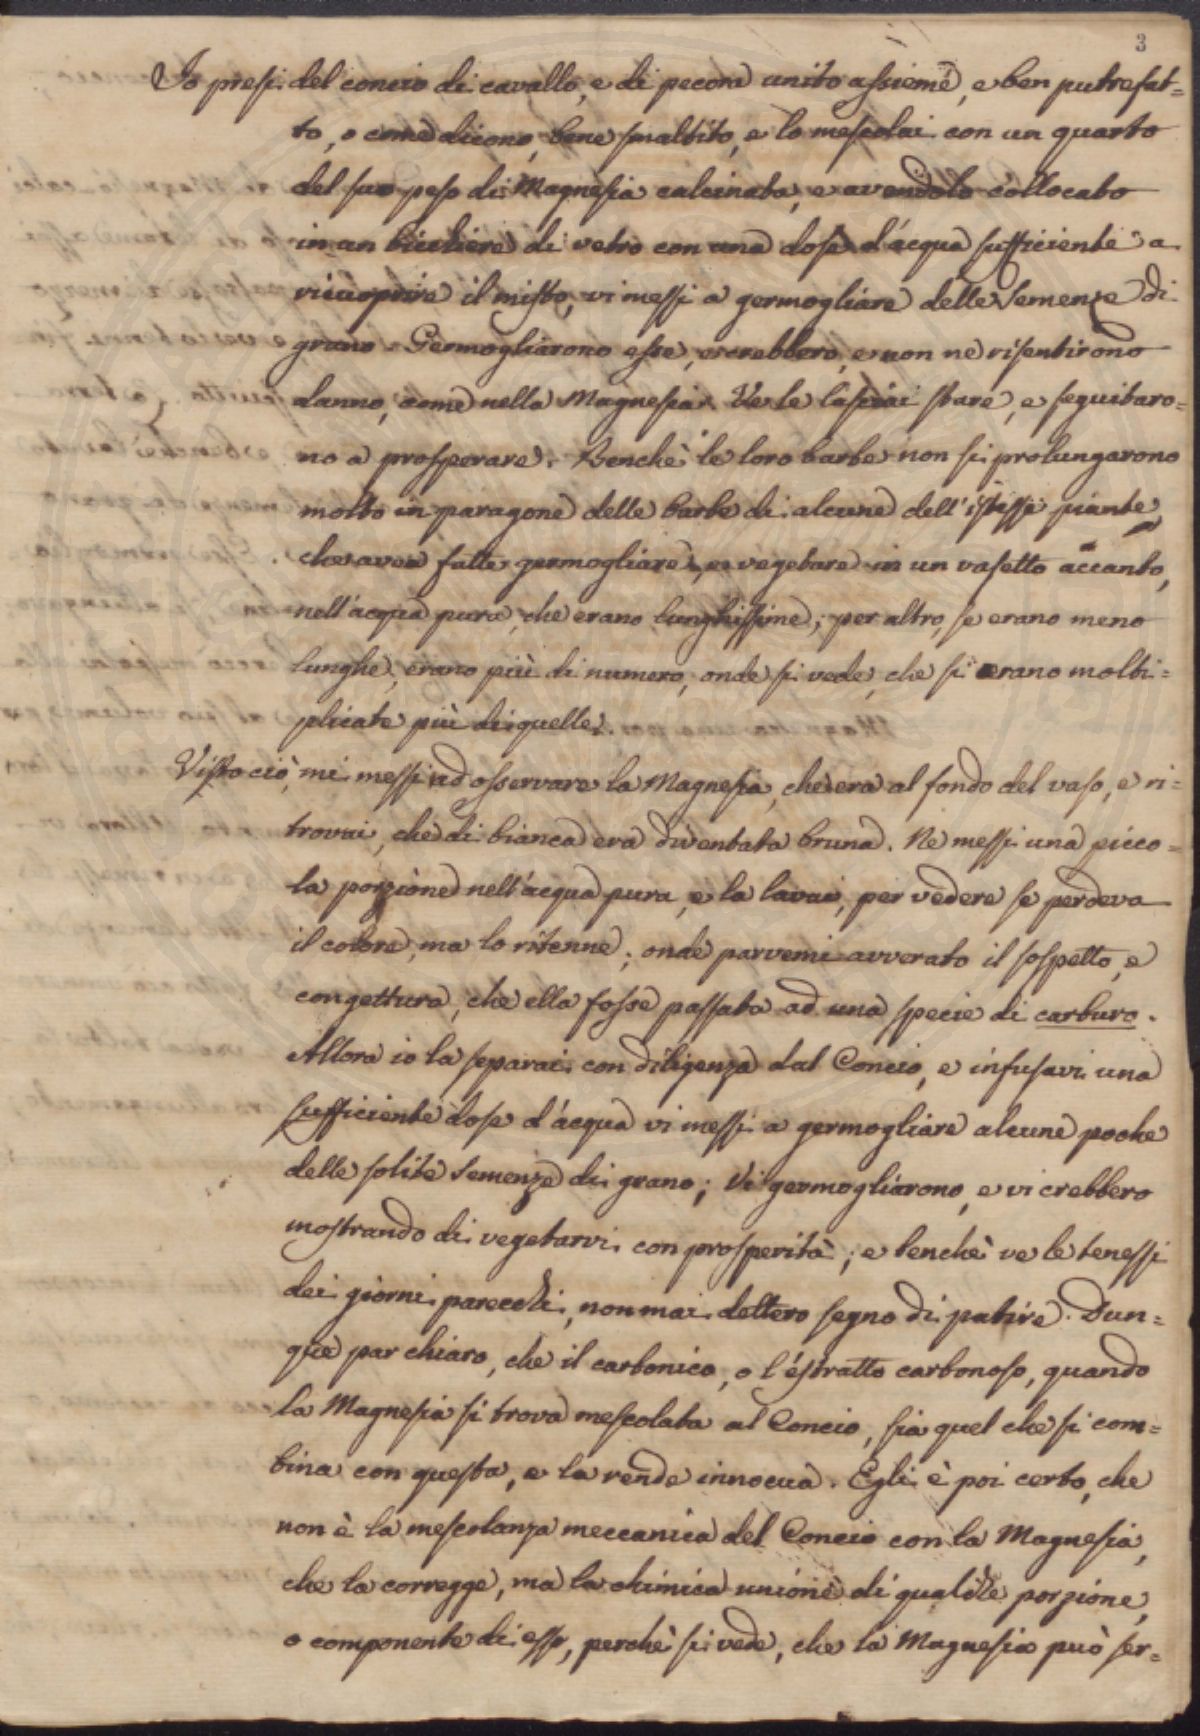 3
Io presi del concio di cavallo, e di pecora unito assieme, e ben putrefat=
to, o come dicono, bene smaltito, e lo mescolai con un quarto
del suo peso di Magnesia calcinata, e avendolo collocato
in un bicchiere di vetro con una dose d'acqua sufficiente a
ricuoprire il misto, vi messi a germogliare delle Semenze di
grano. Germogliarono esse, e crebbero, e non ne risentirono
danno, come nella Magnesia. Ve le lasciai stare, e seguitaro=
no a prosperare. Benchè le loro barbe non si prolungarono
molto in paragone delle barbe di alcune dell'istesse piante,
che avea fatte germogliare, e vegetare in un vasetto accanto,
nell'acqua pura, che erano lunghissime; per altro, se erano meno
lunghe, erano più di numero, onde si vede, che si erano molti=
plicate più di quelle.
Visto ciò, mi messi ad osservare la Magnesia, che era al fondo del vaso, e ri=
trovai, che di bianca era diventata bruna. Ne messi una picco=
la porzione nell'acqua pura, e la lavai, per vedere se perdeva
il colore, ma lo ritenne; onde parvemi avverato il sospetto, e
congettura, che ella fosse passata ad una specie di carburo.
Allora io la separai con diligenza dal Concio, e infusavi una
sufficiente dose d'acqua vi messi a germogliare alcune poche
delle solite Semenze di grano; Vi germogliarono, e vi crebbero
mostrando di vegetarvi con prosperità; e benchè ve le tenessi
dei giorni parecchi, non mai dettero segno di patire. Dun=
que par chiaro, che il carbonico, o l'estratto carbonoso, quando
la Magnesia si trova mescolata al Concio, sia quel che si com=
bina con questa, e la rende innocua. Egli è poi certo, che
non è la mescolanza meccanica del Concio con la Magnesia,
che la corregge, ma la chimica unione di qualche porzione,
o componente di esso, perchè si vede, che la Magnesia può ser=